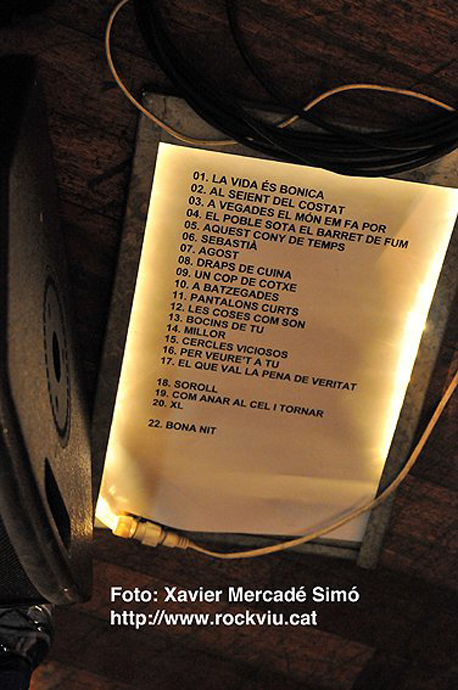 01. LA VIDA ÉS BONICA
02. AL SEIENT DEL COSTAT
03. A VEGADES EL MÓN EM FA POR
04. EL POBLE SOTA EL BARRET DE FUM
05. AQUEST CONY DE TEMPS
06. SEBASTIÀ
07. AGOST
08. DRAPS DE CUINA
09. UN COP DE COTXE
10. A BATZEGADES
11. PANTALONS CURTS
12. LES COSES COM SON
13. BOCINS DE TU
14. MILLOR
15. CERCLES VICIOSOS
16. PER VEURE'T A TU
17. EL QUE VAL LA PENA DE VERITAT
18. SOROLL
19. COM ANAR AL CEL I TORNAR
20. XL
22. BONA NIT
Foto: Xavier Mercadé Simó
http://www.rockviu.cat